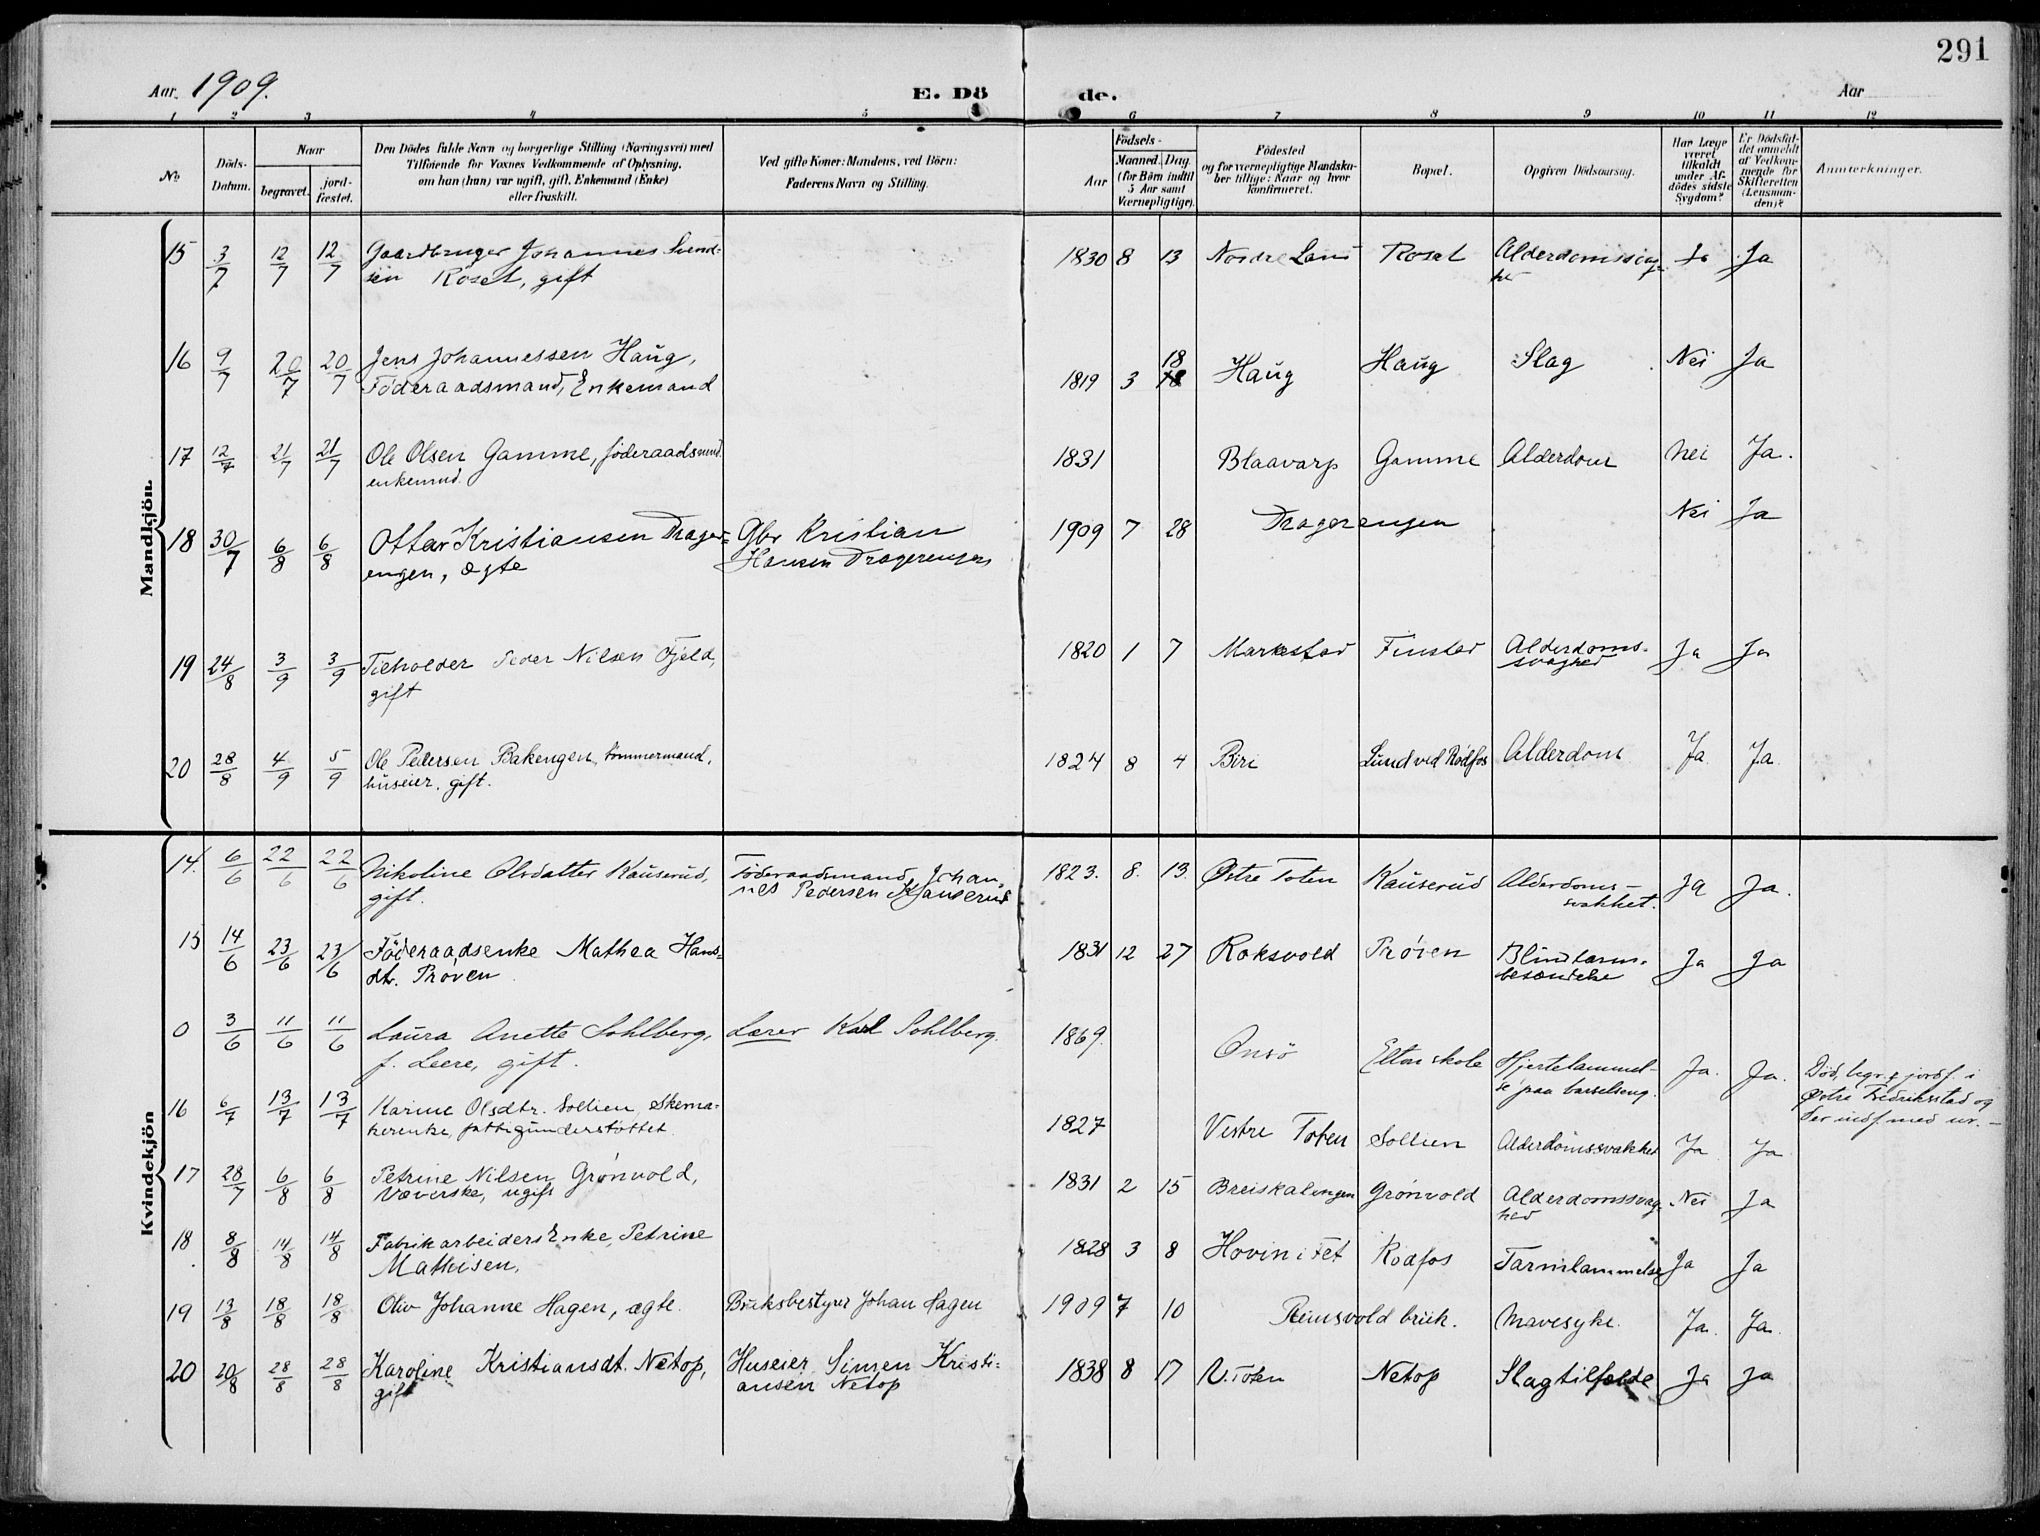 291
Aar. 1909.
E. Dö
de.
Aar
1 2 3 4 5 6 7 8 9 10 11 12
No
Döds-Datum.
Naar
begravet.
jord-fæstet.
Den Dödes fulde Navn og borgerlige Stilling (Næringsvei) med
Tilföiende for Voxnes Vedkommende af Oplysning,
om han (hun) var ugift, gift, Enkemand (Enke)
eller fraskilt.
Ved gifte Koner: Mandens, ved Börn:
Faderens Navn og Stilling.
Födsels-
Aar
Maaned. Dag
(for Börn indtil
5 Aar samt
Værnepligtige).
Födested
og for værnepligtige Mandska-
ber tillige: Naar og hvor
konfirmeret.
Bopæl.
Opgiven Dödsaarsag.
Har Læge
været
tilkaldt
under Af-
dödes sidste
Sygdom?
Er Dödsfal-
det anmeldt
af Vedkom-
mende for
Skifteretten
(Lensman-
den)?
Anmerkninger.
Mandkjön.
15 3/7 12/7 12/7 Gaardbruger Johannes Svend- 1830 8 13 Nordre Land Roset Alderdomssvag- Ja Ja
sen Roset, gift hed
16 9/7 20/7 20/7 Jens Johannessen Haug, 1819 3 18 Haug Haug Slag Nei Ja
Föderaadsmand, Enkemand
17 12/7 21/7 21/7 Ole Olsen Gamme, föderaadsmd. 1831 Blaavarp Gamme Alderdom Nei Ja.
enkemd.
18 30/7 6/8 6/8 Ottar Kristiansen Drager- Gbr Kristian 1909 7 28 Dragerengen Nei Ja
engen, ægte Hansen Dragerengen
19 24/8 3/9 3/9 Peder Nilsen Fjeld, 1820 1 7 Markestad Finstad Alderdoms- Ja Ja
gift svaghed
20 28/8 4/9 5/9 Ole Pedersen Bakengen, tömmermand, 1824 8 4 Biri Lund ved Rödfos Alderdom Ja Ja.
huseier, gift.
Kvindekjön
14. 6/6 22/6 22/6 Nikoline Olsdatter Kauserud, Föderaadsmand Johan- 1823. 8. 13. Østre Toten Kauserud Alderdoms- Ja Ja.
gift. nes Pedersen Kauserud svakhet.
15 14/6 23/6 23/6 Föderaadsenke Mathea Hans- 1831 12 27 Roksvold Pröven Blindtarm- Ja Ja
dt. Pröven betændelse
0 3/6 11/6 11/6 Laura Anette Sohlberg, Lærer Karl Sohlberg. 1869. Onsö Elton skole Hjertelammel- Ja. Ja. Död, begr. & jordf. i
f. Leere, gift. se paa barselseng. Østre Fredriksstad og
der indf. med nr. –
16 6/7 13/7 13/7 Karine Olsdtr. Sollien, Skema- 1827 Vestre Toten Sollien Alderdomssvakhet Ja Ja
kerenke, fattigunderstöttet.
17 28/7 6/8 6/8 Petrine Nilsen Grönvold, 1831 2 15 Breiskalengen Grönvold Alderdomssvag- Nei Ja
Væverske, ugift hed
18 8/8 14/8 14/8 Fabrikarbeiders Enke, Petrine 1828 3 8 Hovin i Fet Rödfos Tarmlammelse Ja Ja
Mathisen,
19 13/8 18/8 18/8 Oliv Johanne Hagen, ægte. Bruksbestyrer Johan Hagen 1909 7 10 Reinsvold bruk. Mavesyke. Ja. Ja.
20 20/8 28/8 28/8 Karoline Kristiansdt. Netop, Huseier Simen Kristi- 1838 8 17 V. Toten Netop Slagtilfælde Ja Ja
gift ansen Netop